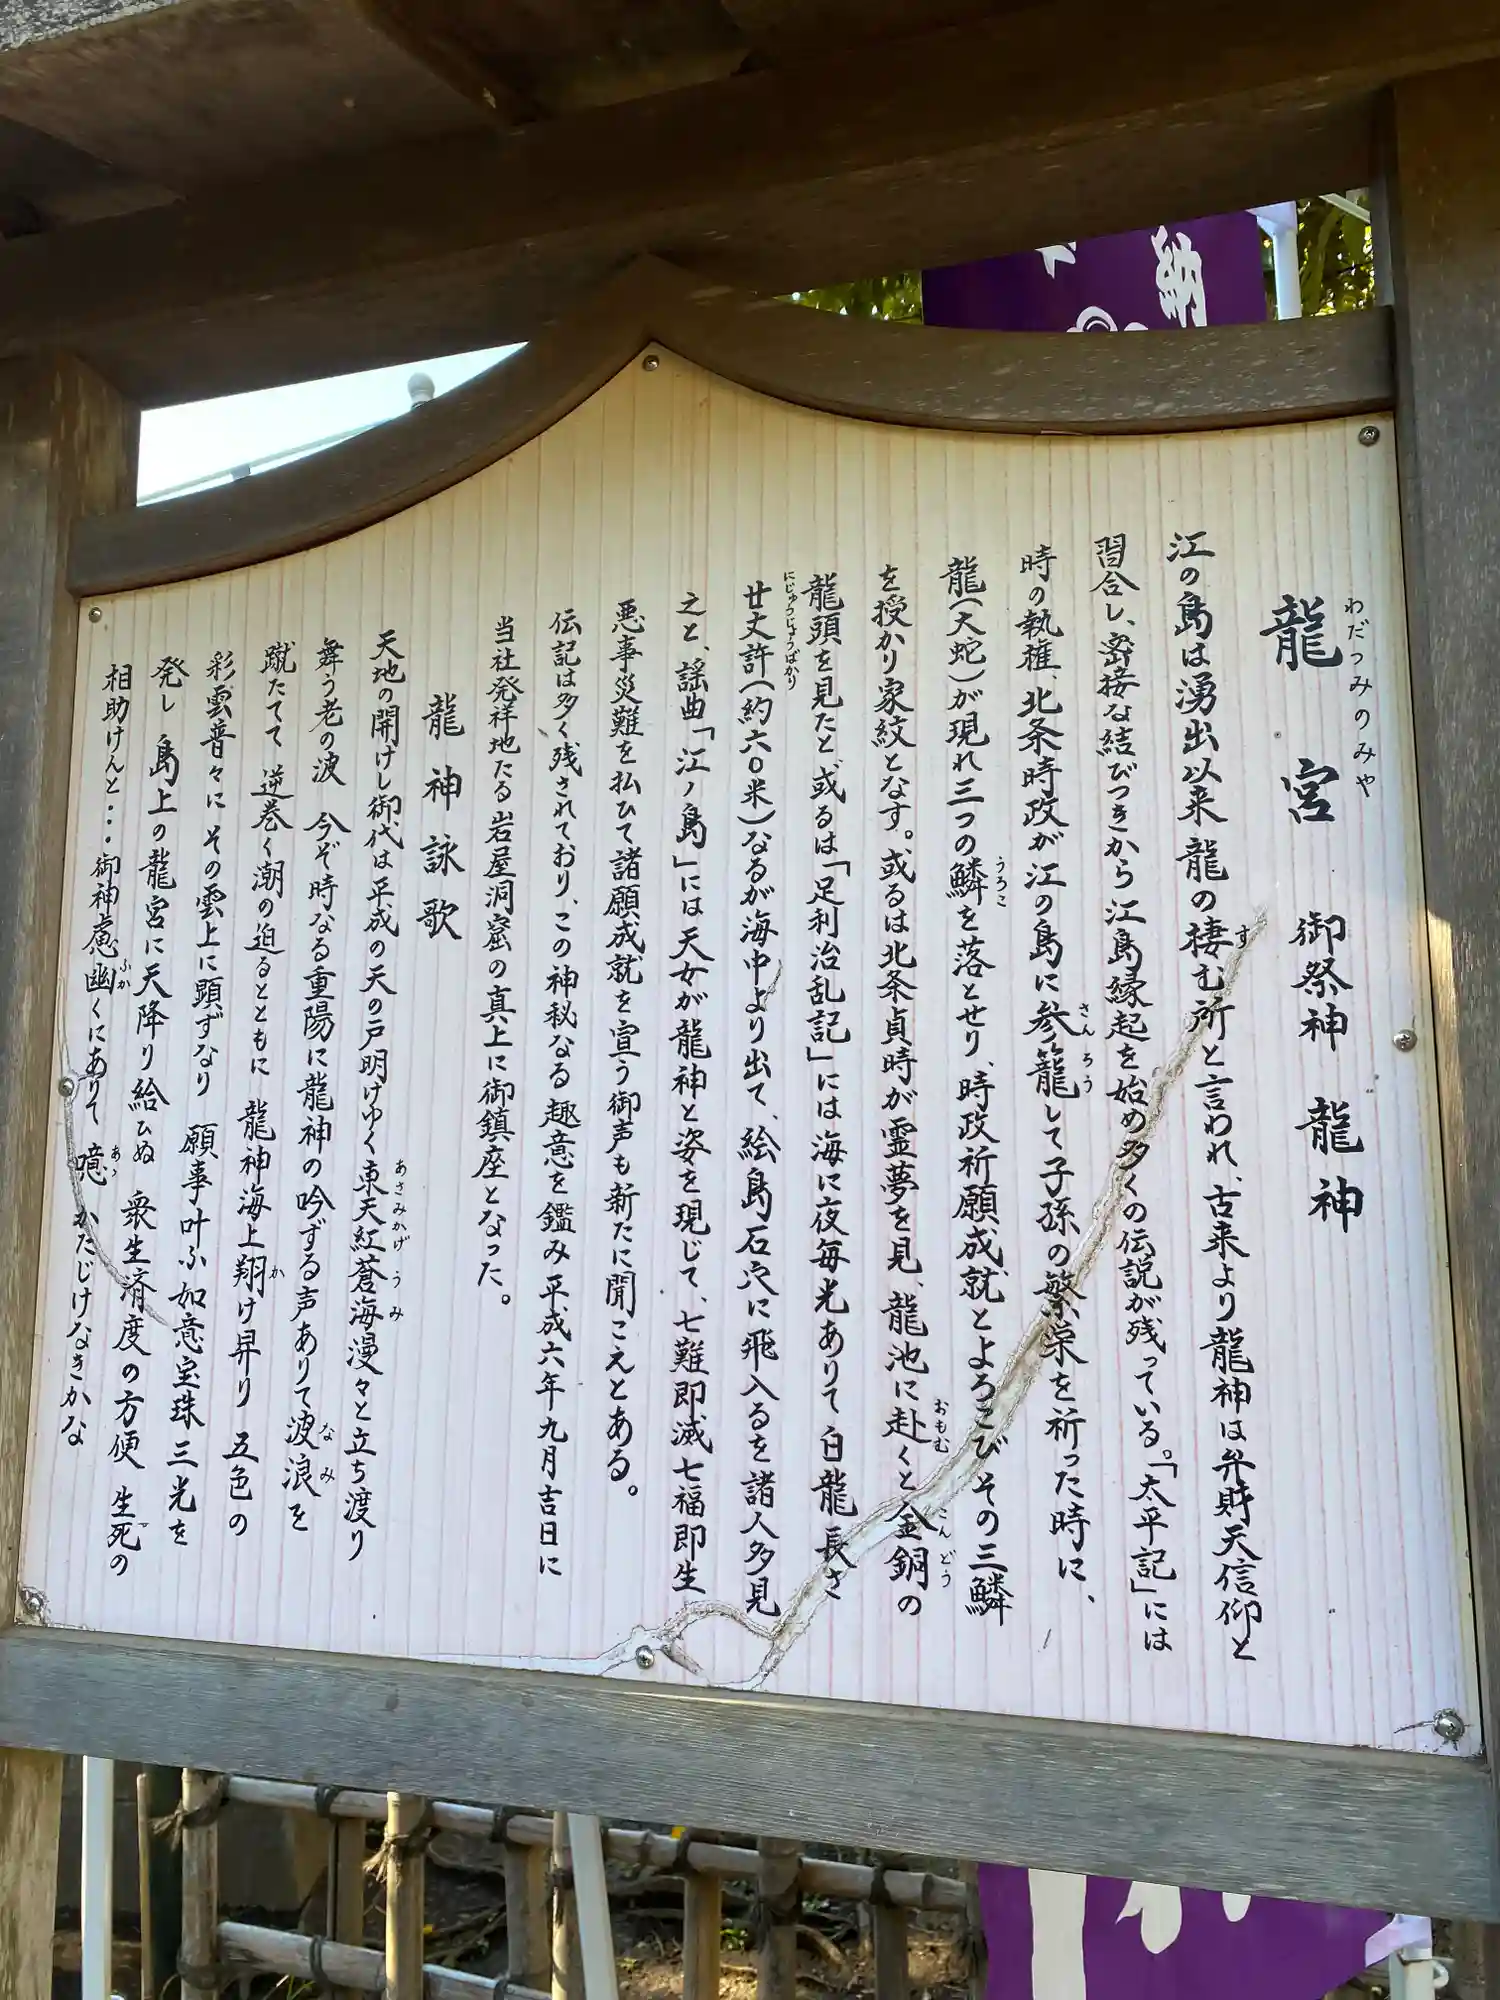 龍宮 御祭神 龍神
わだつみのみや
江の島は湧出以来龍の棲む所と言われ、古来より龍神は弁財天信仰と
す
習合し、密接な結びつきから江島縁起を始め多くの伝説が残っている。「太平記」には
時の執権、北条時政が江の島に参籠して子孫の繁栄を祈った時に、
さんろう
龍(大蛇)が現れ三つの鱗を落とせり、時政祈願成就とよろこびその三鱗
うろこ
を授かり家紋となす。或るは北条貞時が霊夢を見、龍池に赴くと金銅の
おもむ
こんどう
龍頭を見たと或るは「足利治乱記」には海に夜毎光ありて白龍長さ
廿丈許(約六〇米)なるが海中より出て、絵島石穴に飛入るを諸人多見
にじゅうじょうばかり
之と、謡曲「江ノ島」には天女が龍神と姿を現じて、七難即滅七福即生
悪事災難を払ひて諸願成就を宣う御声も新たに聞こえとある。
伝記は多く残されており、この神秘なる趣意を鑑み平成六年九月吉日に
当社発祥地たる岩屋洞窟の真上に御鎮座となった。
龍神詠歌
天地の開けし御代は平成の天の戸明けゆく東天紅蒼海漫々と立ち渡り
あさみかげ うみ
舞う老の波 今ぞ時なる重陽に龍神の吟ずる声ありて波浪を
なみ
蹴たてて 逆巻く潮の迫るとともに 龍神海上翔け昇り 五色の
か
彩雲普々に その雲上に顕ずなり 願事叶ふ如意宝珠三光を
発し 島上の龍宮に天降り給ひぬ 衆生済度の方便 生死の
相助けんと・・・御神慮幽くにありて 噫 かたじけなきかな
ふか
あゝ
納